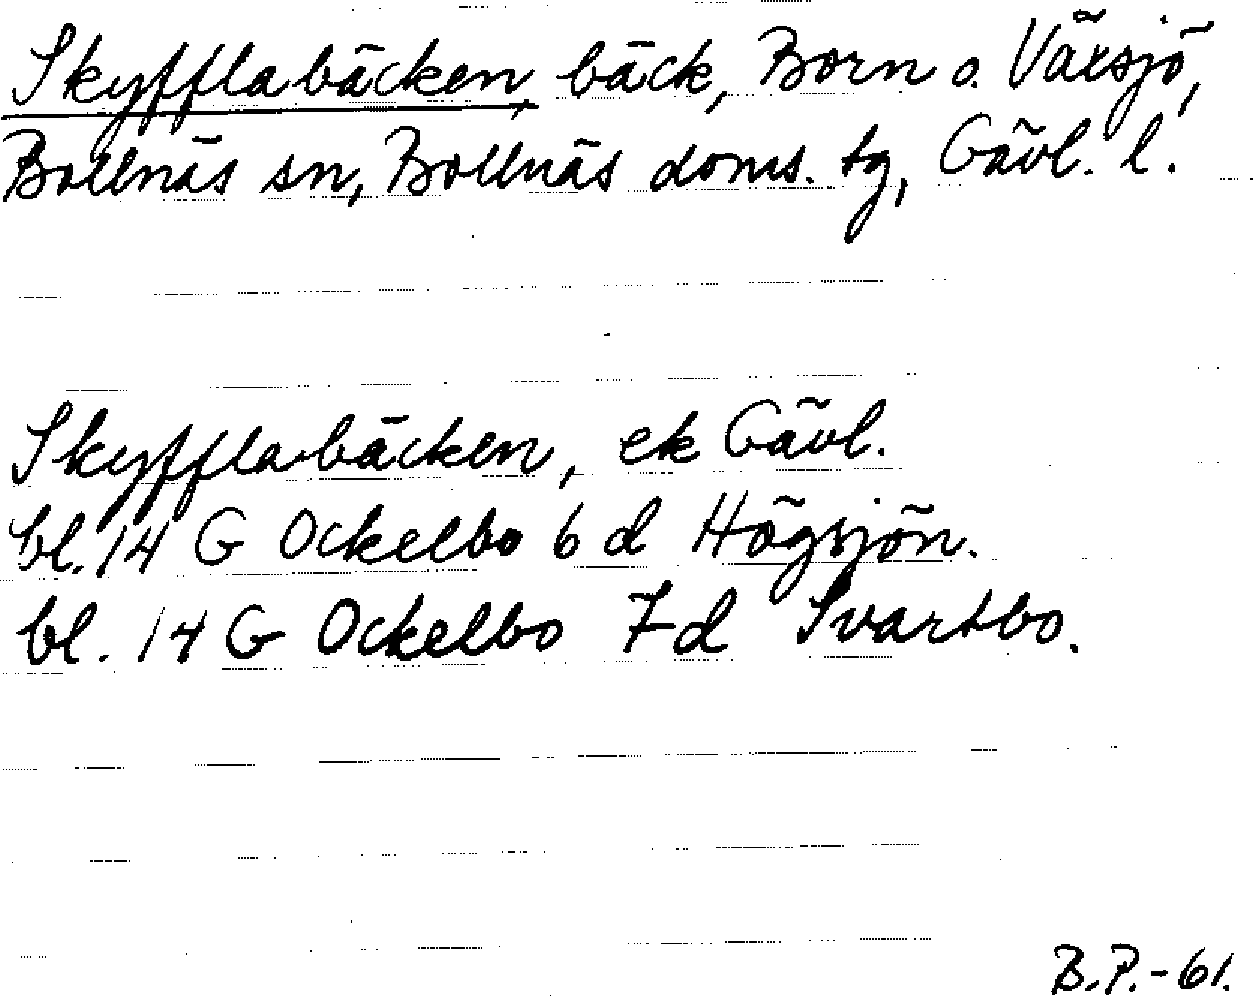 Skyfflabäcken, bäck, Born o. Växsjö,
Bollnäs sn, Bollnäs doms. tg, Gävl. l.
Skyfflabäcken, ek Gävl.
bl. 14 G Ockelbo 6 d Högsjön.
bl. 14 G Ockelbo 7 d Svartbo.
B.P.-61.